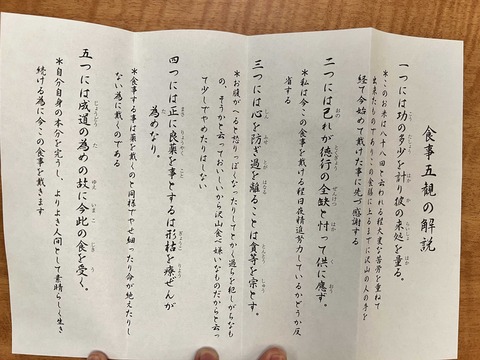 食事五観の解説
一つには功の多少を計り彼の来処を量る。
＊このお米は八十八回と云われる程大変な苦労を重ねて
出来たものでありこの食膳に上るまでに沢山の人の手を
経て今始めて戴けた事に先づ感謝する
二つには己れが徳行の全缺と忖って供に應ず。
＊私は今この食事を戴ける程日夜精進努力しているかどうか反
省する
三つには心を防ぎ過を離るゝことは貪等を宗とす。
＊お腹がへると怒りっぽくなったりしてとかく過ちを犯しがちなも
の、そうかと云っておいしいから沢山食べ嫌いなものだからと云っ
て少しでやめたりはしない
四つには正に良薬を事とするは形枯を療ぜんが
為めなり。
＊食事する事は薬を戴くのと同様でやせ細ったり命が絶えたりし
ない為に戴くのである
五つには成道の為めの故に今此の食を受く。
＊自分自身の本分を完うし、よりよき人間として素晴らしく生き
続ける為に今この食事を戴きます